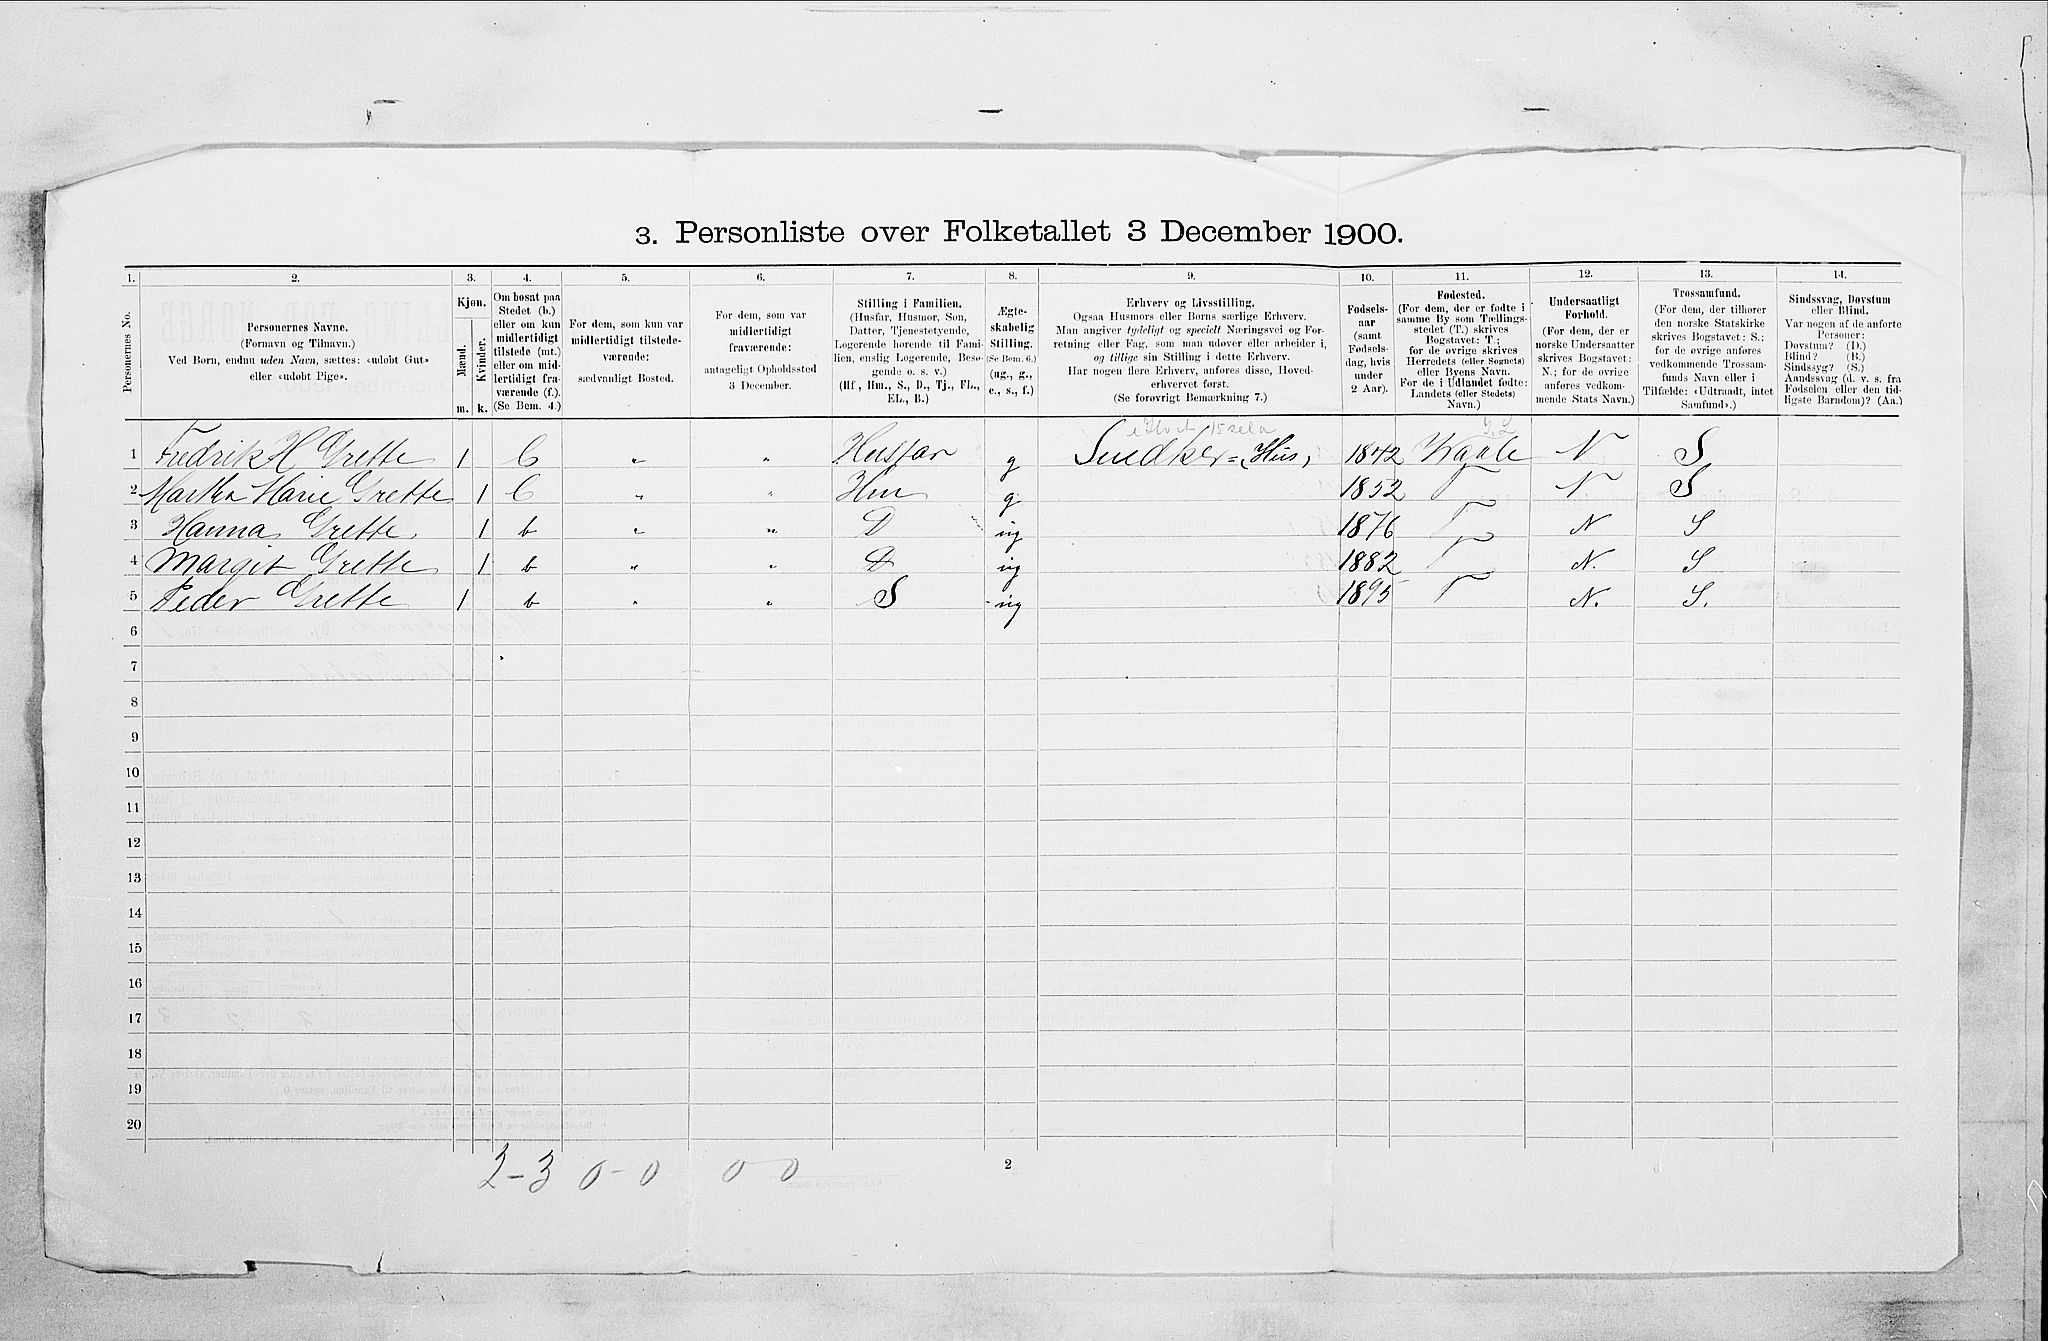 3. Personliste over Folketallet 3 December 1900.
1. 2. 3. 4. 5. 6. 7. 8. 9. 10. 11. 12. 13. 14.
Personernes No.
Personernes Navne.
(Fornavn og Tilnavn.)
Ved Børn, endnu uden Navn, sættes: «udøbt Gut»
eller «udøbt Pige».
Kjøn.
Mænd.
Kvinder.
m. k.
Om bosat paa
Stedet (b.)
eller om kun
midlertidigt
tilstede (mt.)
eller om mid-
lertidigt fra-
værende (f.).
(Se Bem. 4.)
For dem, som kun var
midlertidigt tilstede-
værende:
sædvanligt Bosted.
For dem, som var
midlertidigt
fraværende:
antageligt Opholdssted
3 December.
Stilling i Familien.
(Husfar, Husmor, Søn,
Datter, Tjenestetyende,
Logerende hørende til Fami-
lien, enslig Logerende, Besø-
gende o. s. v.)
(Hf, Hm., S., D., Tj., FL.,
EL., B.)
Ægte-
skabelig
Stilling.
(Se Bem. 6.)
(ug., g.,
e., s., f.)
Erhverv og Livsstilling.
Ogsaa Husmors eller Børns særlige Erhverv.
Man angiver tydeligt og specielt Næringsvei og For-
retning eller Fag, som man udøver eller arbeider i,
og tillige sin Stilling i dette Erhverv.
Har nogen flere Erhverv, anføres disse, Hoved-
erhvervet først.
(Se forøvrigt Bemærkning 7.)
Fødsels-
aar
(samt
Fødsels-
dag, hvis
under
2 Aar).
Fødested.
(For dem, der er fødte i
samme By som Tællings-
stedet (T.) skrives
Bogstavet: T.;
for de øvrige skrives
Herredets (eller Sognets)
eller Byens Navn.
For de i Udlandet fødte:
Landets (eller Stedets)
Navn.)
Undersaatligt
Forhold.
(For dem, der er
norske Undersaatter
skrives Bogstavet:
N.; for de øvrige
anføres vedkom-
mende Stats Navn.)
Trossamfund.
(For dem, der tilhører
den norske Statskirke
skrives Bogstavet: S.;
for de øvrige anføres
vedkommende Trossam-
funds Navn eller i
Tilfælde: «Udtraadt, intet
Samfund».)
Sindssvag, Døvstum
eller Blind.
Var nogen af de anførte
Personer:
Døvstum? (D.)
Blind? (B.)
Sindssyg? (S.)
Aandssvag (d. v. s. fra
Fødselen eller den tid-
ligste Barndom)? (Aa.)
1 Fredrik H Grette 1 b " " Husfar g Snedker = Hus, 1842 Vaale N S
2 Martha Marie Grette 1 b " " Hm g 1852 T N S
3 Hanna Grette. 1 b " " D ug 1876 T N S
4 Margit Grette 1 b " " D ug 1882 T N. S
5 Peder Grette 1 b " " S ug 1895 T N. S.
6
7
8
9
10
11
12
13
14
15
16
17
18
19
20
2-3 0-0 0 0
2